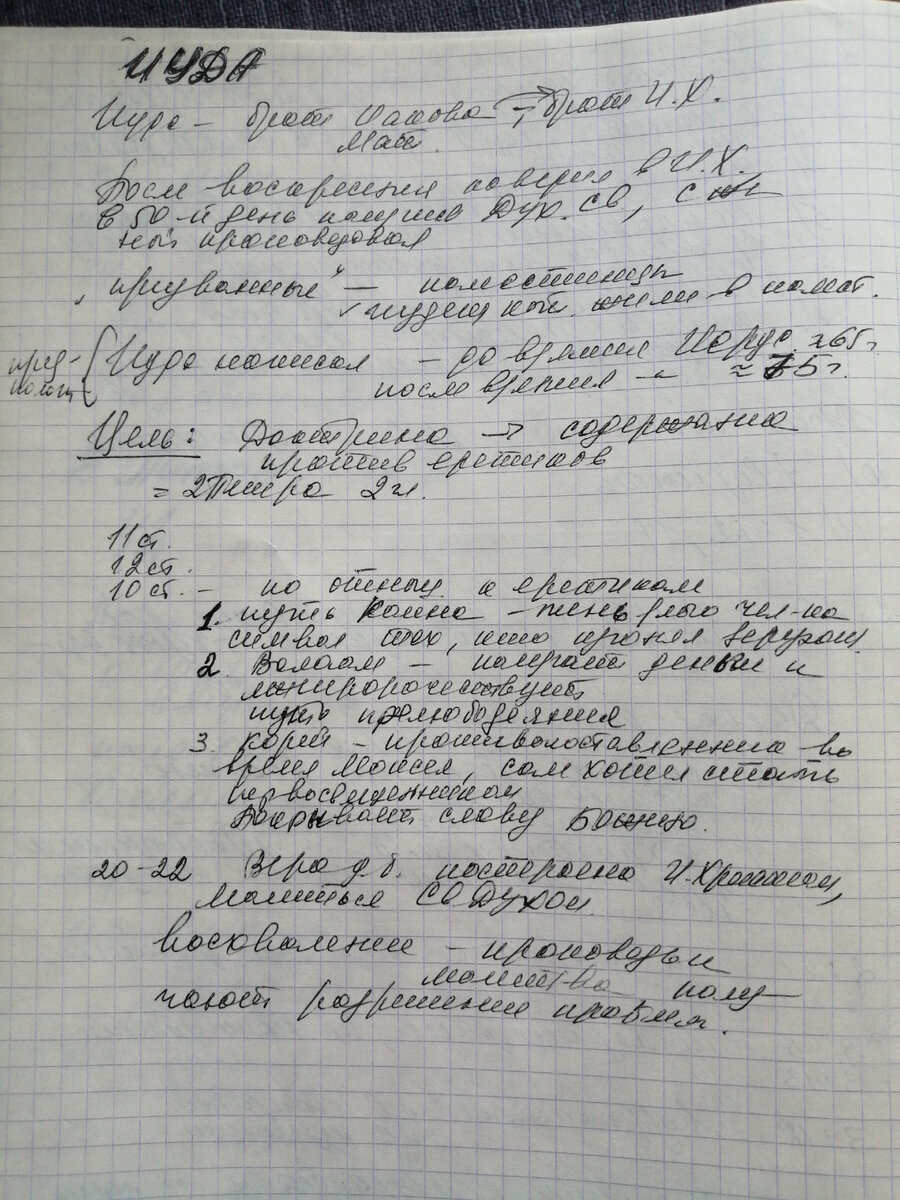 ИУДА
Иуда – брат Иакова → брат И.Х.
Мат.
После воскресения поверил в И.Х.
в 50-й день получив Дух. Св,
проповедовал
"призванные" –
иудеи жили в
Иуда написал – до времени Иерус ≈65г.
после времени –"– ≈75г.
Цель: Доктрина → содержание
против еретиков
= 2 Петра 2 гл.
11 ст.
12 ст.
10 ст. – по отнош. к еретикам
1. путь Каина – тень злого чел-ка
символ тех, кто
2. Валаам – получает деньги и
лжепророчествует
путь прелюбодеяния
3. Корей – противопоставление во
время Моисея, сам хотел стать
первосвященником
Покрывает славу Божию.
20-22 Вера д.б. построена И.Христом,
молиться Св Духом.
восхваление – проповедь и
молит-ва полу-
чают разрешение проблем.